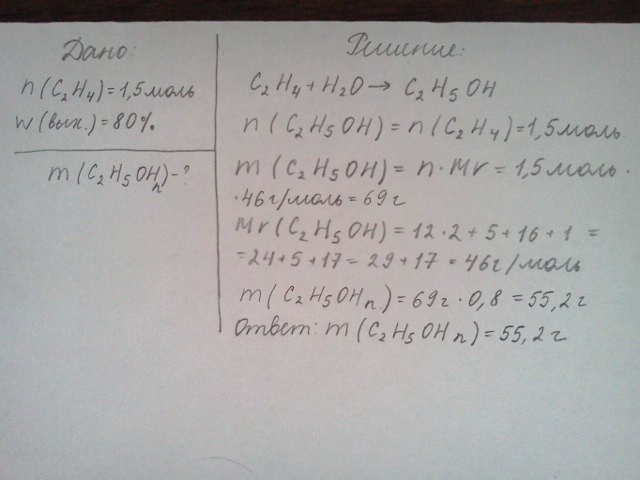 Дано:
n(C₂H₄)=1,5моль
w(вых.)=80%
m(C₂H₅OHₙ)-?
Решение:
C₂H₄+H₂O→ C₂H₅OH
n(C₂H₅OH)=n(C₂H₄)=1,5моль
m(C₂H₅OH)=n·Mr=1,5моль·
·46г/моль=69г
Mr(C₂H₅OH)=12·2+5+16+1=
=24+5+17=29+17=46г/моль
m(C₂H₅OHₙ)=69г·0,8=55,2г
Ответ: m(C₂H₅OHₙ)=55,2г